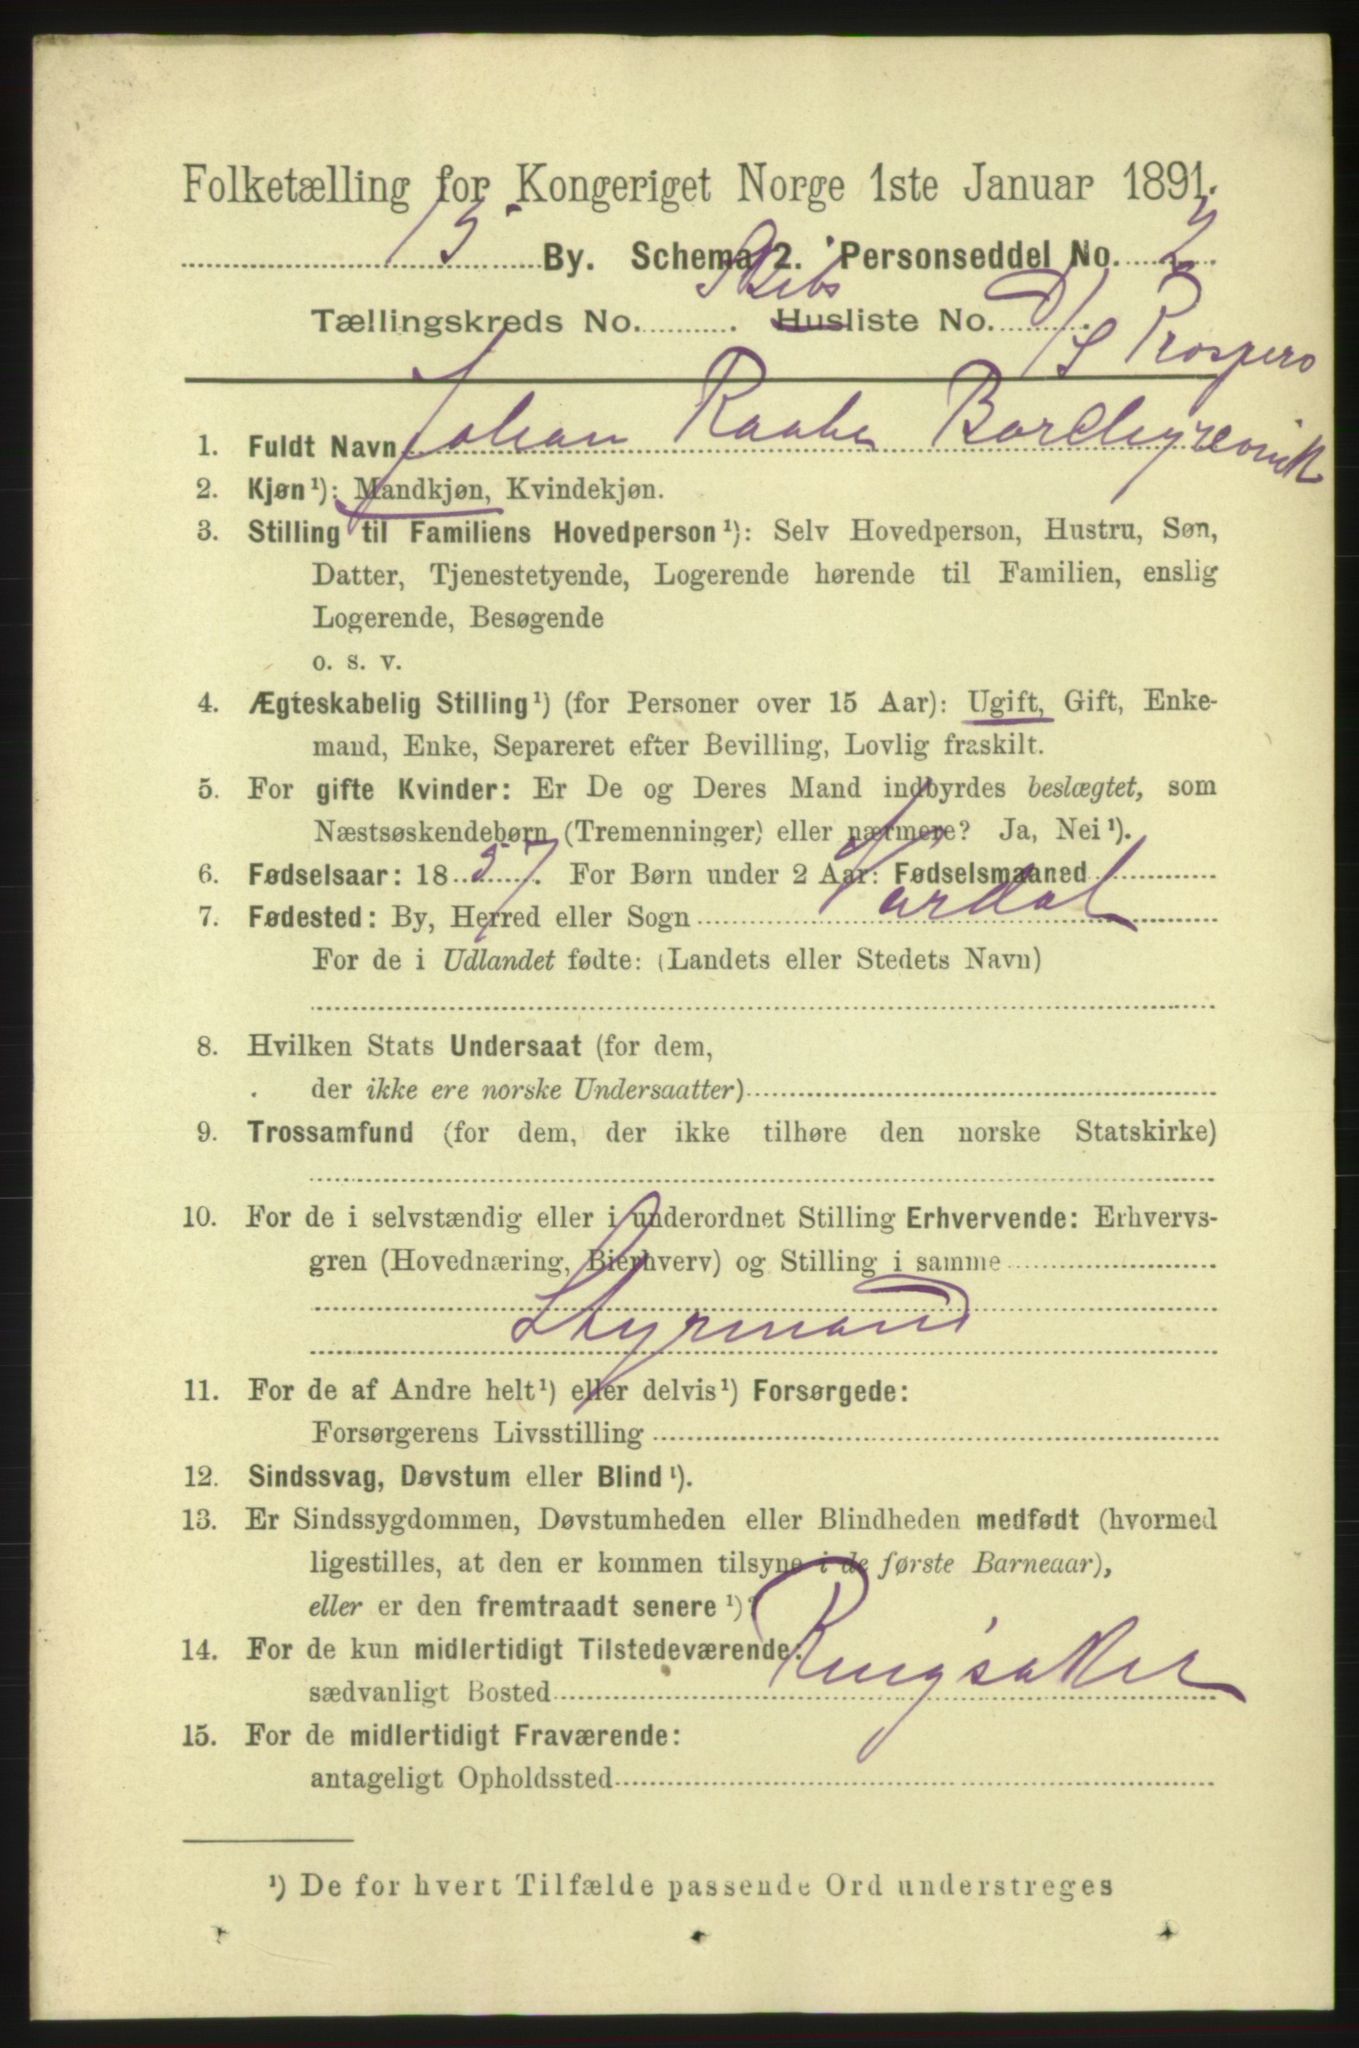 Folketælling for Kongeriget Norge 1ste Januar 1891.
By. Schema 2. Personseddel No. 2
Tællingskreds No. Skibs Husliste No. D/S Prospero
1. Fuldt Navn Johan Raabe
2. Kjøn ¹): Mandkjøn, Kvindekjøn.
3. Stilling til Familiens Hovedperson ¹): Selv Hovedperson, Hustru, Søn,
Datter, Tjenestetyende, Logerende hørende til Familien, enslig
Logerende, Besøgende
o. s. v.
4. Ægteskabelig Stilling ¹) (for Personer over 15 Aar): Ugift, Gift, Enke-
mand, Enke, Separeret efter Bevilling, Lovlig fraskilt.
5. For gifte Kvinder: Er De og Deres Mand indbyrdes beslægtet, som
Næstsøskendebørn (Tremenninger) eller nærmere? Ja, Nei ¹).
6. Fødselsaar: 1857. For Børn under 2 Aar: Fødselsmaaned
7. Fødested: By, Herred eller Sogn Vardal
For de i Udlandet fødte: (Landets eller Stedets Navn)
8. Hvilken Stats Undersaat (for dem,
der ikke ere norske Undersaatter)
9. Trossamfund (for dem, der ikke tilhøre den norske Statskirke)
10. For de i selvstændig eller i underordnet Stilling Erhvervende: Erhvervs-
gren (Hovednæring, Bierhverv) og Stilling i samme
Styrmand
11. For de af Andre helt ¹) eller delvis ¹) Forsørgede:
Forsørgerens Livsstilling
12. Sindssvag, Døvstum eller Blind ¹).
13. Er Sindssygdommen, Døvstumheden eller Blindheden medfødt (hvormed
ligestilles, at den er kommen tilsyne i de første Barneaar),
eller er den fremtraadt senere ¹)?
14. For de kun midlertidigt Tilstedeværende:
sædvanligt Bosted Ringsaker
15. For de midlertidigt Fraværende:
antageligt Opholdssted
¹) De for hvert Tilfælde passende Ord understreges